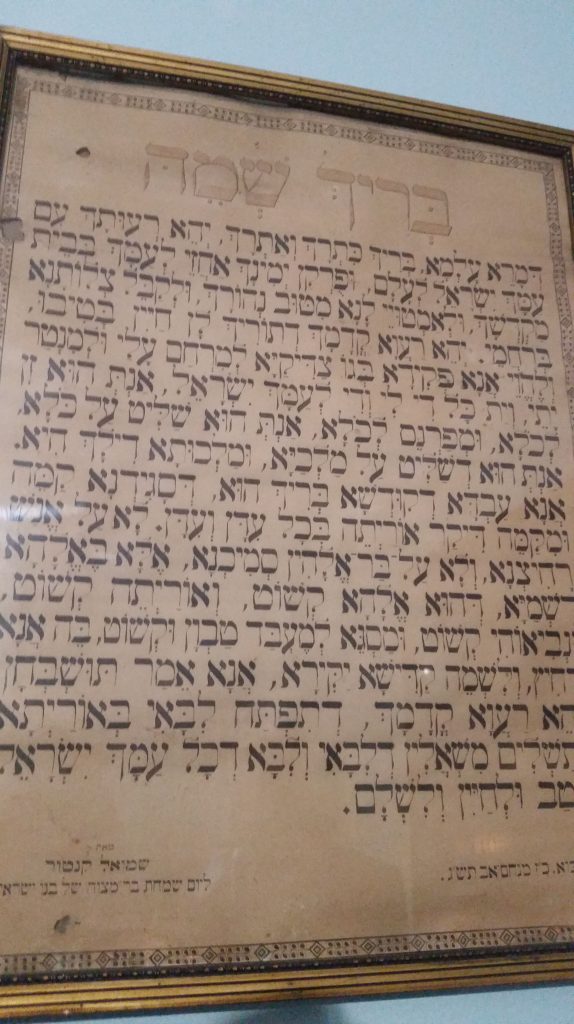 בְּרִיךְ שְׁמֵהּ
דְמָרֵא עָלְמָא, בְּרִיךְ כִּתְרָךְ וְאַתְרָךְ, יְהֵא רְעוּתָךְ עִם
עַמָּךְ יִשְׂרָאֵל לְעָלַם, וּפֻרְקַן יְמִינָךְ אַחֲזֵי לְעַמָּךְ בְּבֵית
מִקְדְּשָׁךְ, וּלְאַמְטוּיֵי לָנָא מִטּוּב נְהוֹרָךְ, וּלְקַבֵּל צְלוֹתָנָא
בְּרַחֲמִי. יְהֵא רַעֲוָא קֳדָמָךְ דְּתוֹרִיךְ לָן חַיִּין בְּטִיבוּ,
וְלֶהֱוֵי אֲנָא פְקִידָא בְּגוֹ צַדִּיקַיָּא, לְמִרְחַם עֲלַי וּלְמִנְטַר
יָתִי, וְיָת כָּל דִּי לִי, וְדִי לְעַמָּךְ יִשְׂרָאֵל. אַנְתְּ הוּא זָן
לְכֹלָּא, וּמְפַרְנֵס לְכֹלָּא, אַנְתְּ הוּא שַׁלִּיט עַל כֹּלָּא.
אַנְתְּ הוּא דְשַׁלִּיט עַל מַלְכַיָּא, וּמַלְכוּתָא דִּילָךְ הִיא.
אֲנָא עַבְדָּא דְקוּדְשָׁא בְּרִיךְ הוּא, דְסָגִידְנָא קַמֵּהּ
וּמִקַּמֵּהּ דִיקַר אוֹרַיְתֵהּ בְּכָל עִדָּן וְעִדָּן. לָא עַל אֱנָשׁ
רָחִיצְנָא, וְלָא עַל בַּר אֱלָהִין סָמִיכְנָא, אֶלָּא בֶּאֱלָהָא
דִשְׁמַיָּא, דְהוּא אֱלָהָא קְשׁוֹט, וְאוֹרַיְתֵהּ קְשׁוֹט,
וּנְבִיאוֹהִי קְשׁוֹט, וּמַסְגֵּא לְמֶעְבַּד טַבְוָן וּקְשׁוֹט, בֵּהּ אֲנָא
רָחִיץ, וְלִשְׁמֵהּ קַדִּישָׁא יַקִּירָא, אֲנָא אֵמַר תּוּשְׁבְּחָן
יְהֵא רַעֲוָא קֳדָמָךְ, דְתִפְתַּח לִבָּאִי בְּאוֹרַיְתָא
וְתַשְׁלִים מִשְׁאֲלִין דְלִבָּאִי וְלִבָּא דְכָל עַמָּךְ יִשְׂרָאֵל
לְטַב וּלְחַיִּין וְלִשְׁלָם.
מאת
שמואל קנטור
ליום שמחת בר־מצוה של בנו ישראל
כ״ז מנחם־אב תש״ג.